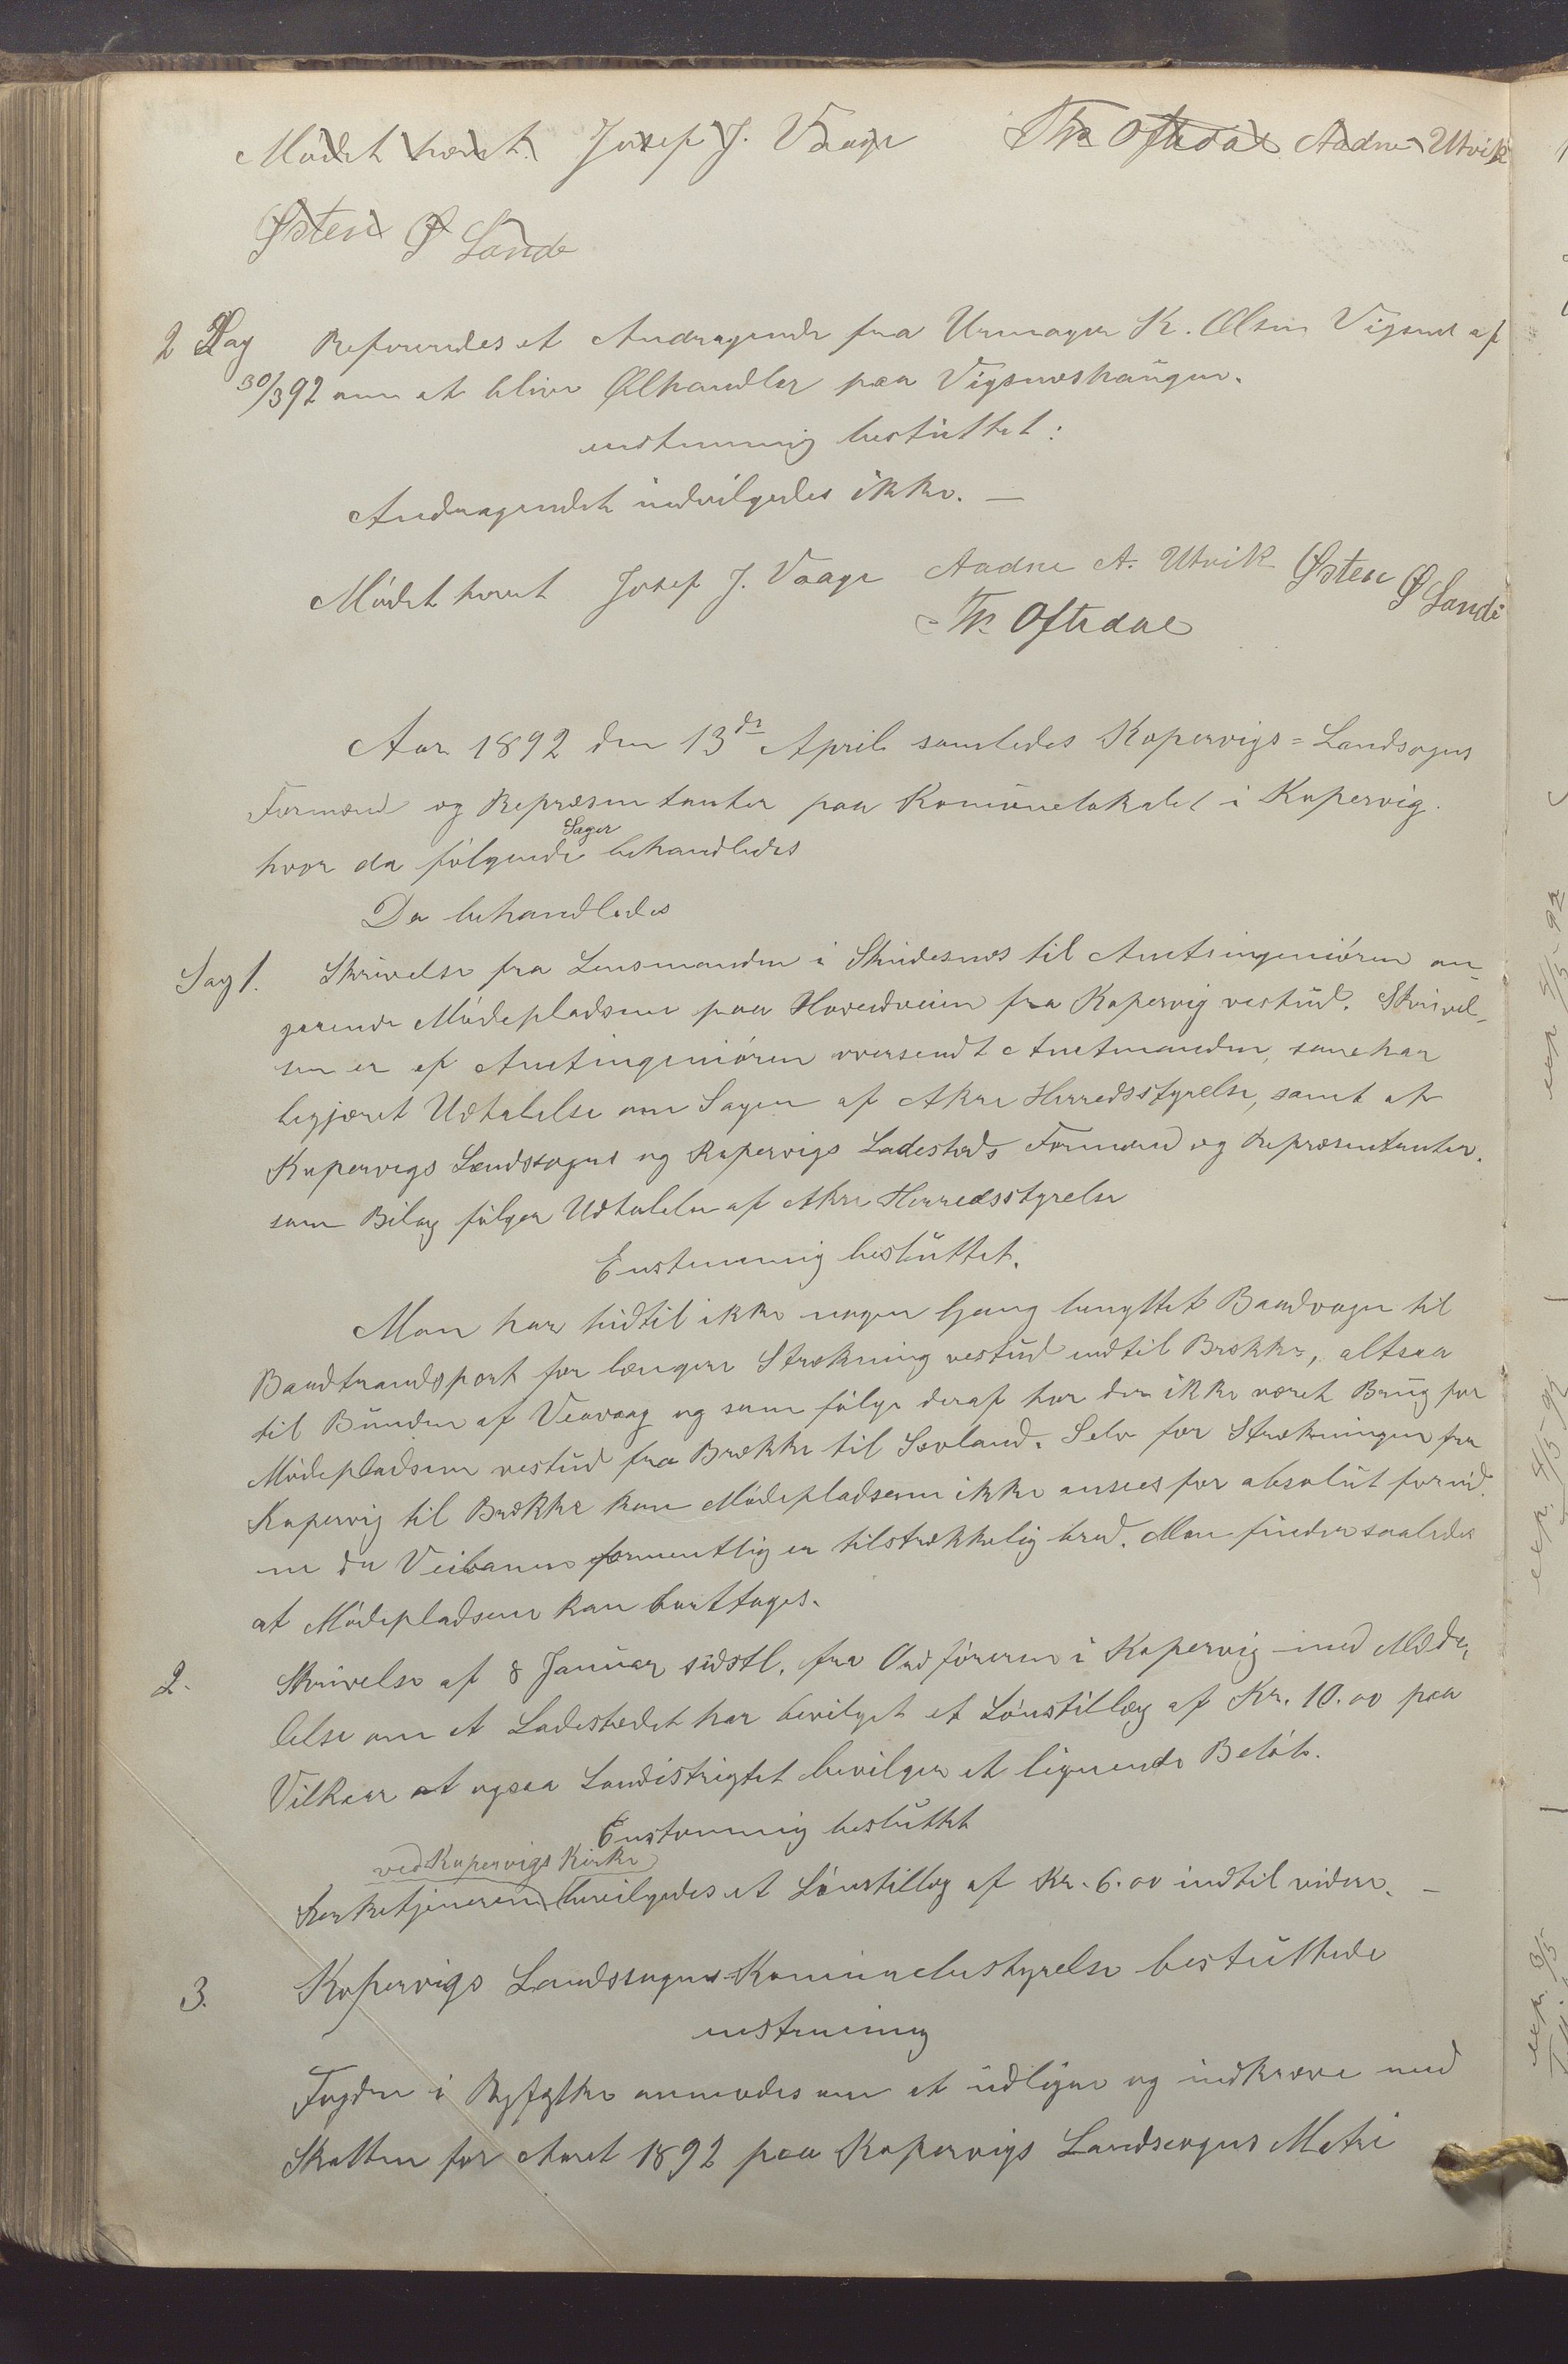 Mödet hævet. Josef J. Vaage Th. Oftedal Aadne Utvik
Østen Ø Sande
2 Sag Refereredes et Andragende fra Urmager K. Olsen Vigsnes af
30/3 92 om at blive Ølhandler paa Vigsneshaugen.
enstemmig besluttet:
Andragendet indvilgedes ikke. —
Mödet hævet Josef J. Vaage Aadne A. Utvik Østen Ø Sande
Th. Oftedal
Aar 1892 den 13de April samledes Kopervigs=Landsogns
Formænd og Repræsentanter paa Komünelokalet i Kopervig.
hvor da fölgende Sager behandledes
Da behandledes
Sag 1. Skrivelse fra Lensmanden i Skudesnes til Amtsingeniören an-
gaaende Mödepladsene paa Hovedveien fra Kopervig vestüd. Skrivel-
sen er af Amtingeniören oversendt Amtmanden, som har
begjæret Udtalelse om Sagen af Akre Herredsstyrelse, samt af
Kopervigs Landssogns og Kopervigs Ladesteds Formænd og Repræsentanter.
som Bilag fölger Udtalelse af Akre Herredsstyrelse
Enstemmig beslüttet.
Man har hidtil ikke nogen Gang benyttet Baadvogn til
Baadtrandsport for længere Strækning vestüd indtil Brekke, altsaa
til Bünden af Veavaag og som fölge deraf har der ikke været Brüg for
Mödepladsene vestüd fra Brekke til Sævland. Selv for Strækningen fra
Kopervig til Brekke kan Mödepladsene ikke ansees for absolut fornöd.
ne da Veibanen formentlig er tilstrækkelig bred. Man finder saaledes
at Mödepladsene kan borttages.
2. Skrivelse af 8 Januar sidstl. fra Ordföreren i Kopervig med Medde,
lelse om at Ladestedet har bevilget et Lönstillæg af Kr. 10.00 paa
Vilkaar at ogsaa Landistrigtet bevilger et lignende Belöb.
Enstemmig beslüttet
ved Kopervigs Kirke
Kirketjeneren bevilgedes et Lönstillæg af Kr. 6.00 indtil videre. —
3. Kopervigs Landssogns Komünebestyrelse beslüttede
enstemmig
Fogden i Ryfylke anmodes om at üdligne og indkræve med
Skatten for Aaret 1892 paa Kopervigs Landsogns Matri